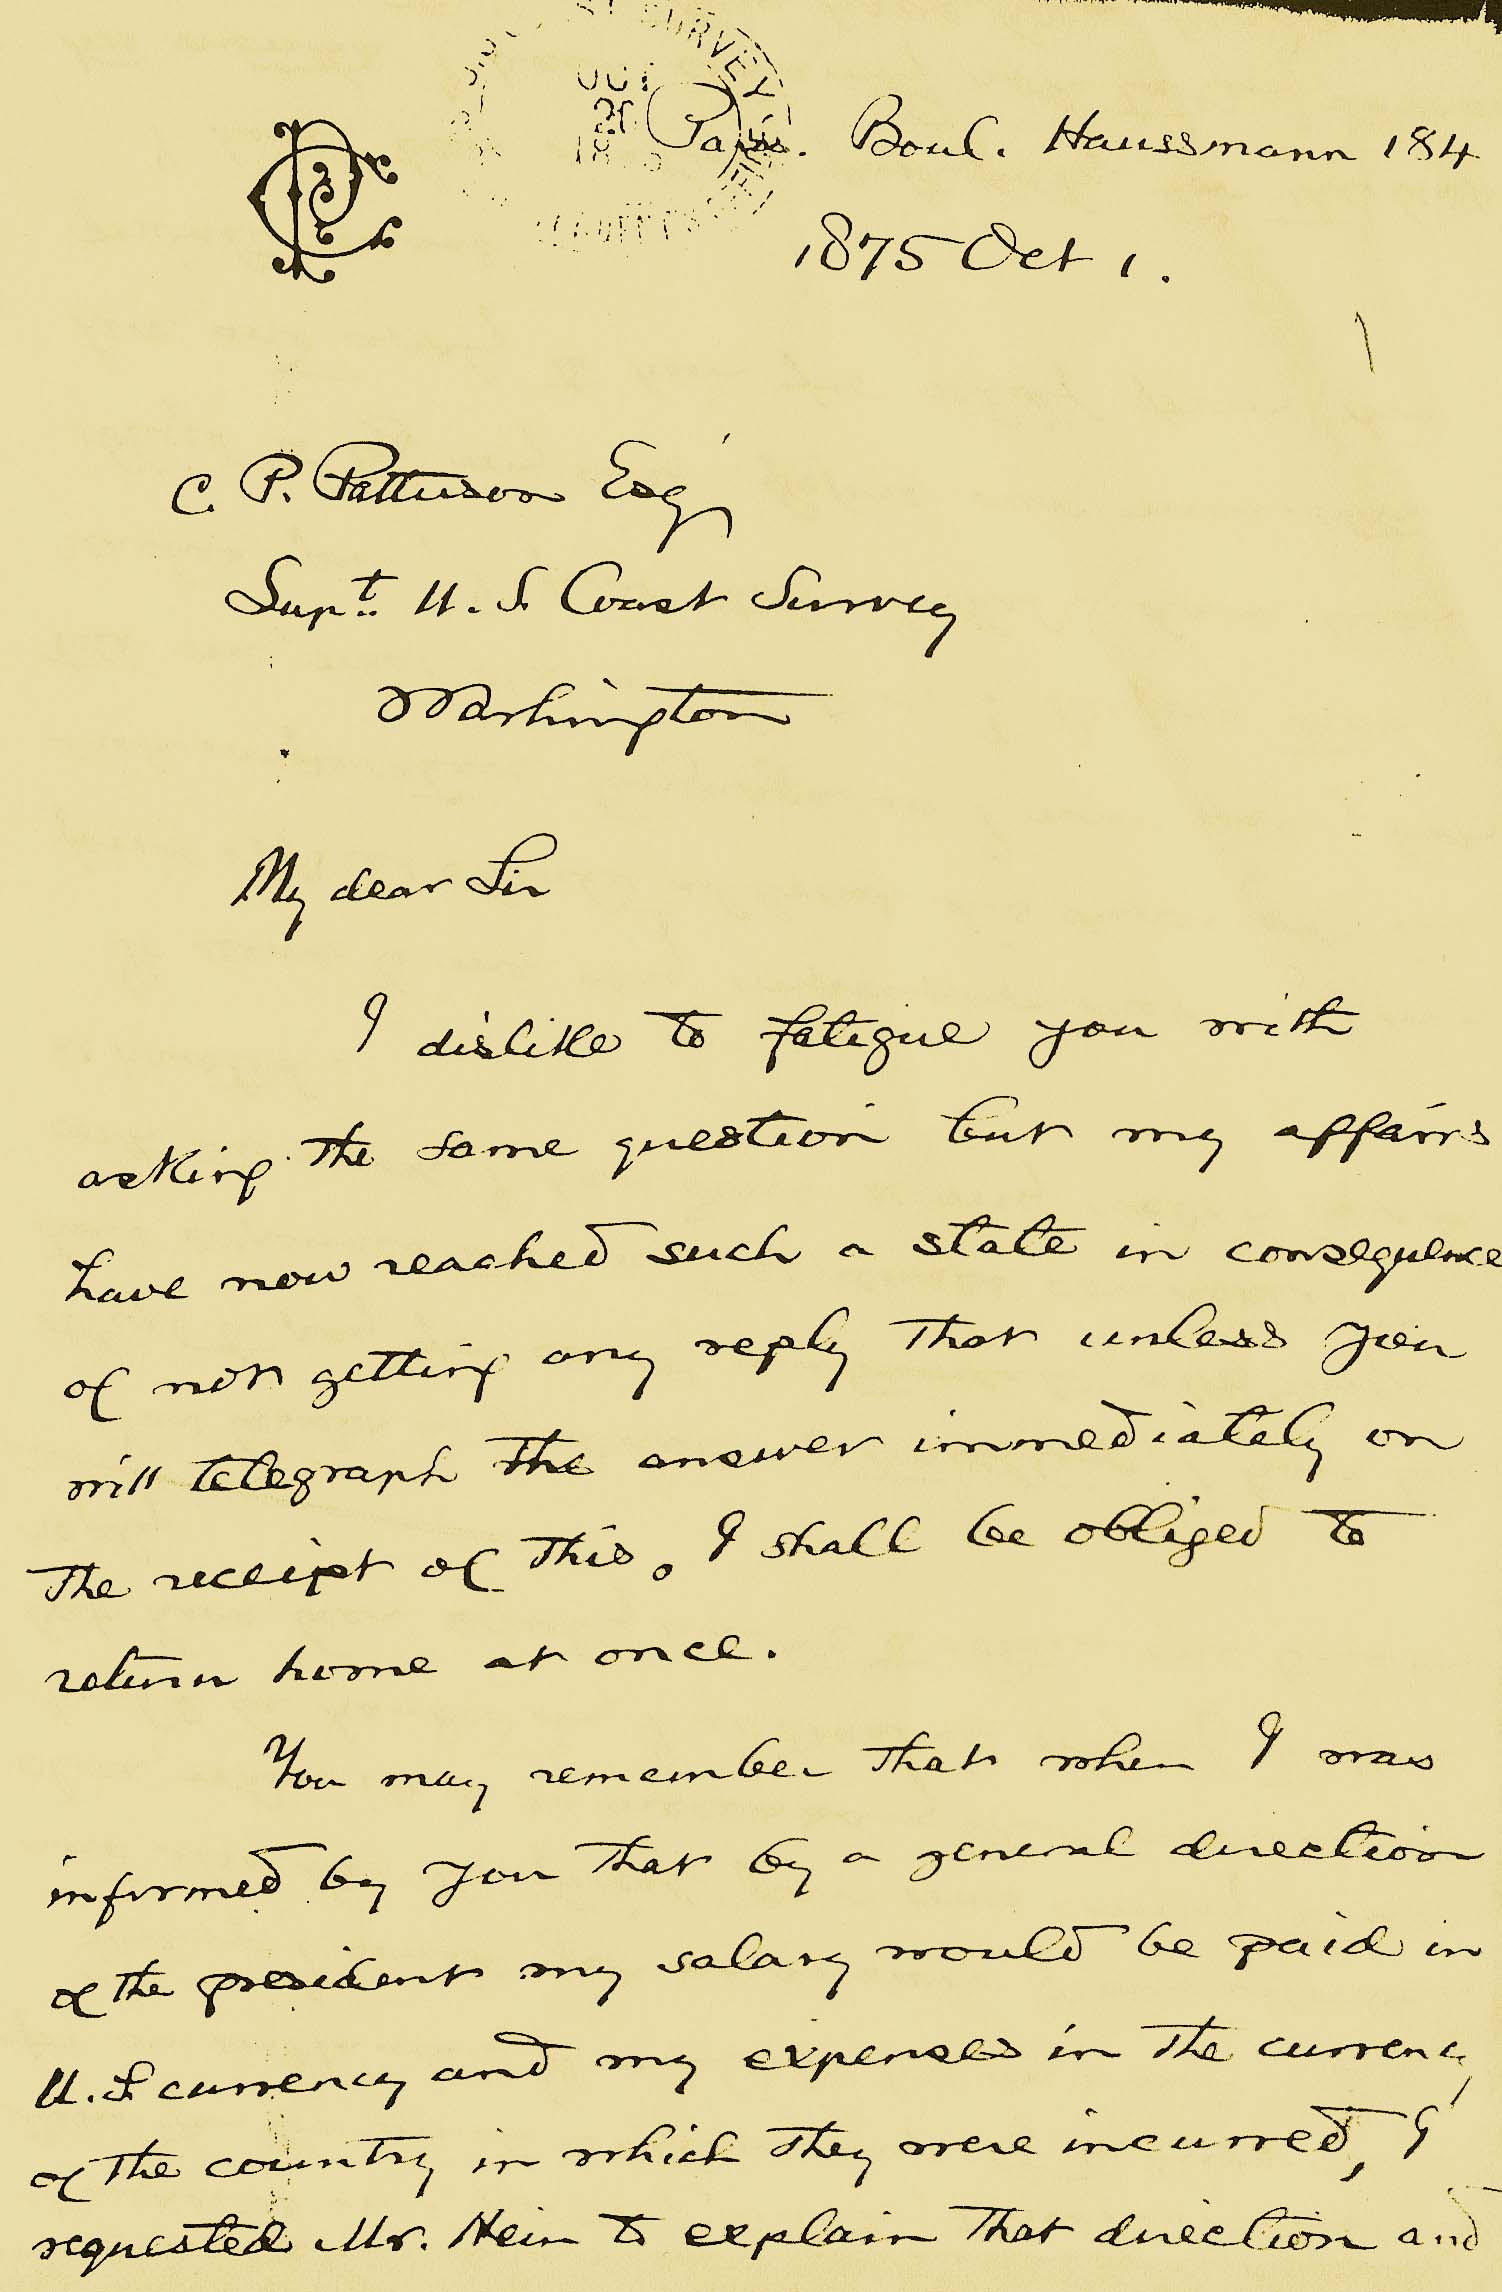 SURVEY
OCT
Paris. Boul. Haussmann 184
1875 Oct 1.
C. P. Patterson Esq
Supt. U. S. Coast Survey
Washington
My dear Sir
I dislike to fatigue you with
asking the same question but my affairs
have now reached such a state in consequence
of not getting any reply that unless you
will telegraph the answer immediately on
the receipt of this. I shall be obliged to
return home at once.
You may remember that when I was
informed by you that by a general direction
of the president my salary would be paid in
U.S. currency and my expenses in the currency
of the country in which they were incurred, I
requested Mr. Hein to explain that direction and